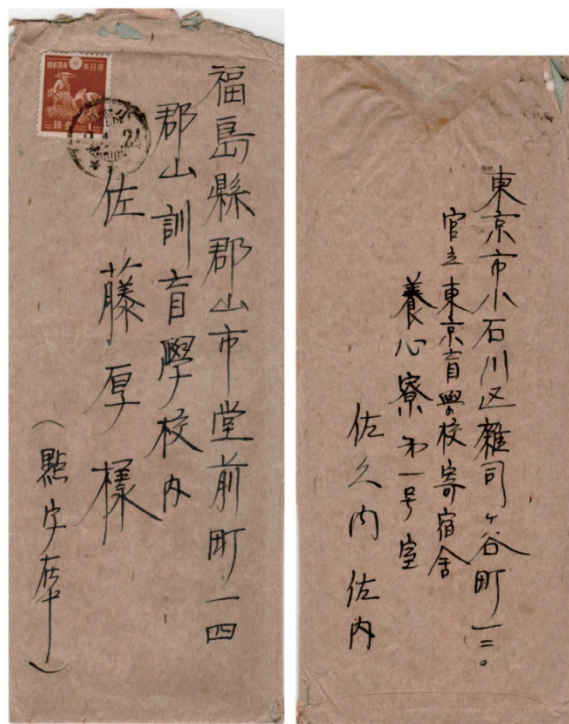 福島縣郡山市堂前町一四
郡山訓盲學校内
佐藤厚様
(點字在中)
東京市小石川区雜司ヶ谷町一二〇
官立東京盲學校寄宿舎
養心寮第一号室
佐久内佐内